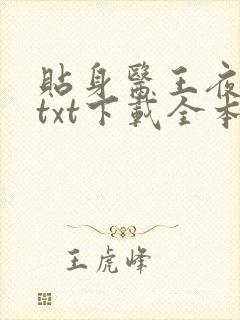 貼身醫王夜
txt下載全本
王虎峰